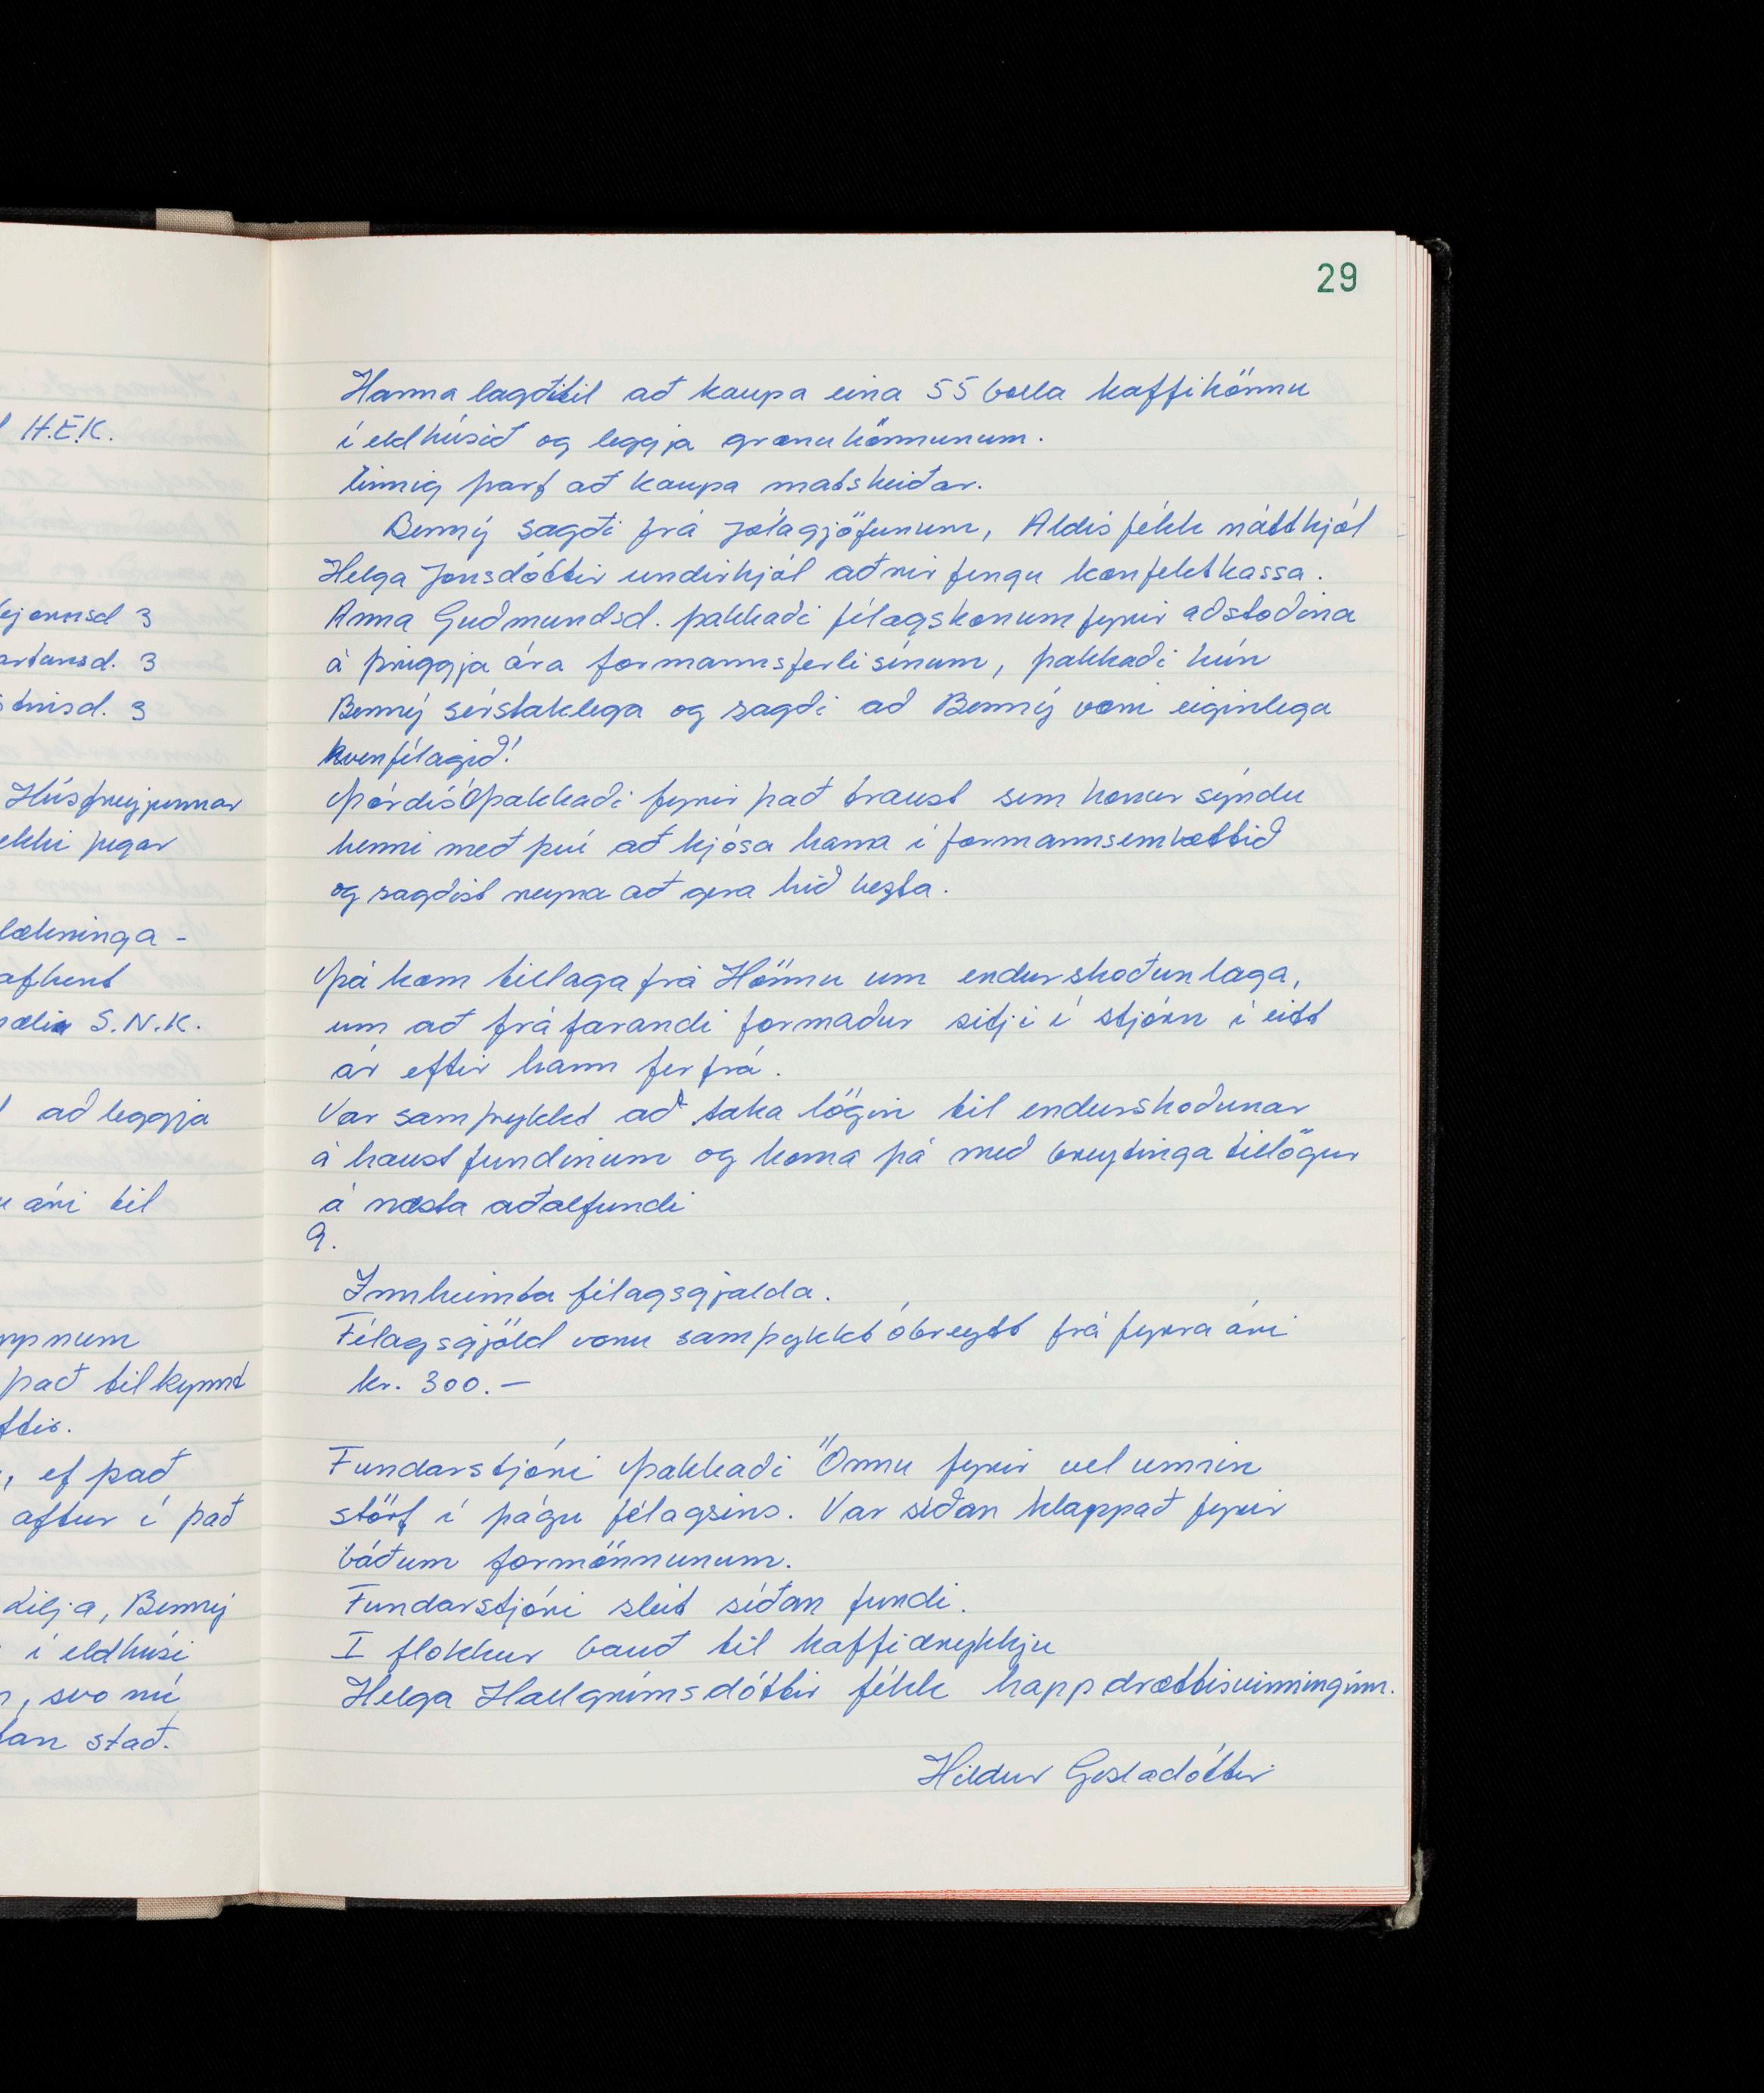 H.E.K.
3
3
3
Húsfreyjunnar
ekki þegar
lækninga -
afhent
S.N.K.
að leggja
ári til
það tilkynnt
, ef það
aftur í það
Lilja, Benný
í eldhúsi
, svo nú
stað.
29
Hanna lagði til að kaupa eina 55 bolla kaffikönnu
í eldhúsið og leggja grænu könnunum.
Einnig þarf að kaupa matskeiðar.
Benný sagði frá jólagjöfunum, Aldís fékk náttkjól
Helga Jónsdóttir undirkjól aðrir fengu konfektkassa.
Anna Guðmundsd. þakkaði félagskonum fyrir aðstoðina
á þriggja ára formannsferli sínum, þakkaði hún
Benný sérstaklega og sagði að Benný væri eiginlega
kvenfélagið!
Þórdís þakkaði fyrir það traust sem konur sýndu
henni með því að kjósa hana í formannsembættið
og sagðist reyna að gera hið bezta.
Þá kom tillaga frá Hönnu um endurskoðun laga,
um að fráfarandi formaður sitji í stjórn í eitt
ár eftir hann fer frá.
Var samþykkt að taka lögin til endurskoðunar
á haustfundinum og koma þá með breytinga tillögur
á næsta aðalfundi
9.
Innheimta félagsgjalda.
Félagsgjöld voru samþykkt óbreytt frá fyrra ári
kr. 300.-
Fundarstjóri þakkaði Önnu fyrir vel unnin
störf í þágu félagsins. Var síðan klappað fyrir
báðum formönnunum.
Fundarstjóri sleit síðan fundi.
I flokkur bauð til kaffidrykkju
Helga Hallgrímsdóttir fékk happdrættisvinninginn.
Hildur Gísladóttir